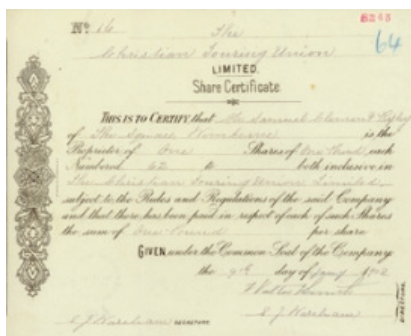 8245
Nº 16 The 64
Christian Touring Union
LIMITED.
Share Certificate.
THIS IS TO CERTIFY that Mr Samuel Clement
of The Square is the
Proprietor of One Shares of One Pound each
Numbered 62 to both inclusive in
The Christian Touring Union Limited
subject to the Rules and Regulations of the said Company
and that there has been paid in respect of each of such Shares
the sum of One Pound per share
GIVEN under the Common Seal of the Company
the 9th day of Jany
Walter
E. J. Wareham SECRETARY. E. J. Wareham
DIRECTORS.